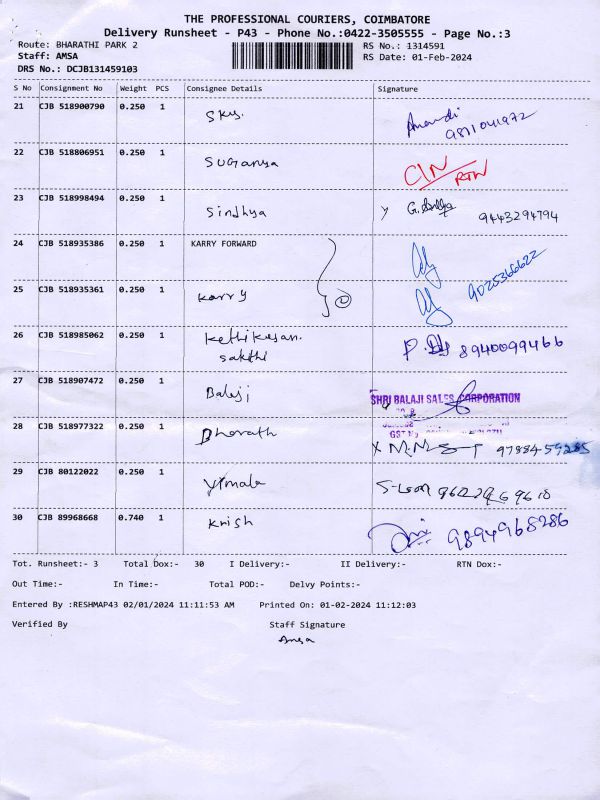 THE PROFESSIONAL COURIERS, COIMBATORE
Delivery Runsheet - P43 - Phone No.:0422-3505555 - Page No.:3
Route: BHARATHI PARK 2 RS No.: 1314591
Staff: AMSA RS Date: 01-Feb-2024
DRS No.: DCJB131459103
S No Consignment No Weight PCS Consignee Details Signature
21 CJB 518900790 0.250 1 Anandi
9811041972
22 CJB 518806951 0.250 1 Suganya C/N RTN
23 CJB 518998494 0.250 1 Sindhya 9443294794
24 CJB 518935386 0.250 1 KARRY FORWARD
25 CJB 518935361 0.250 1 Karry 9025366622
26 CJB 518985062 0.250 1 8940099466
sakthi
27 CJB 518907472 0.250 1 Balaji SHRI BALAJI SALES CORPORATION
28 CJB 518977322 0.250 1 Bharath GST No 9788459285
29 CJB 80122022 0.250 1 Vimala
30 CJB 89968668 0.740 1 Krish 9894968286
Tot. Runsheet:- 3 Total Dox:- 30 I Delivery:- II Delivery:- RTN Dox:-
Out Time:- In Time:- Total POD:- Delvy Points:-
Entered By :RESHMAP43 02/01/2024 11:11:53 AM Printed On: 01-02-2024 11:12:03
Verified By Staff Signature
Amsa